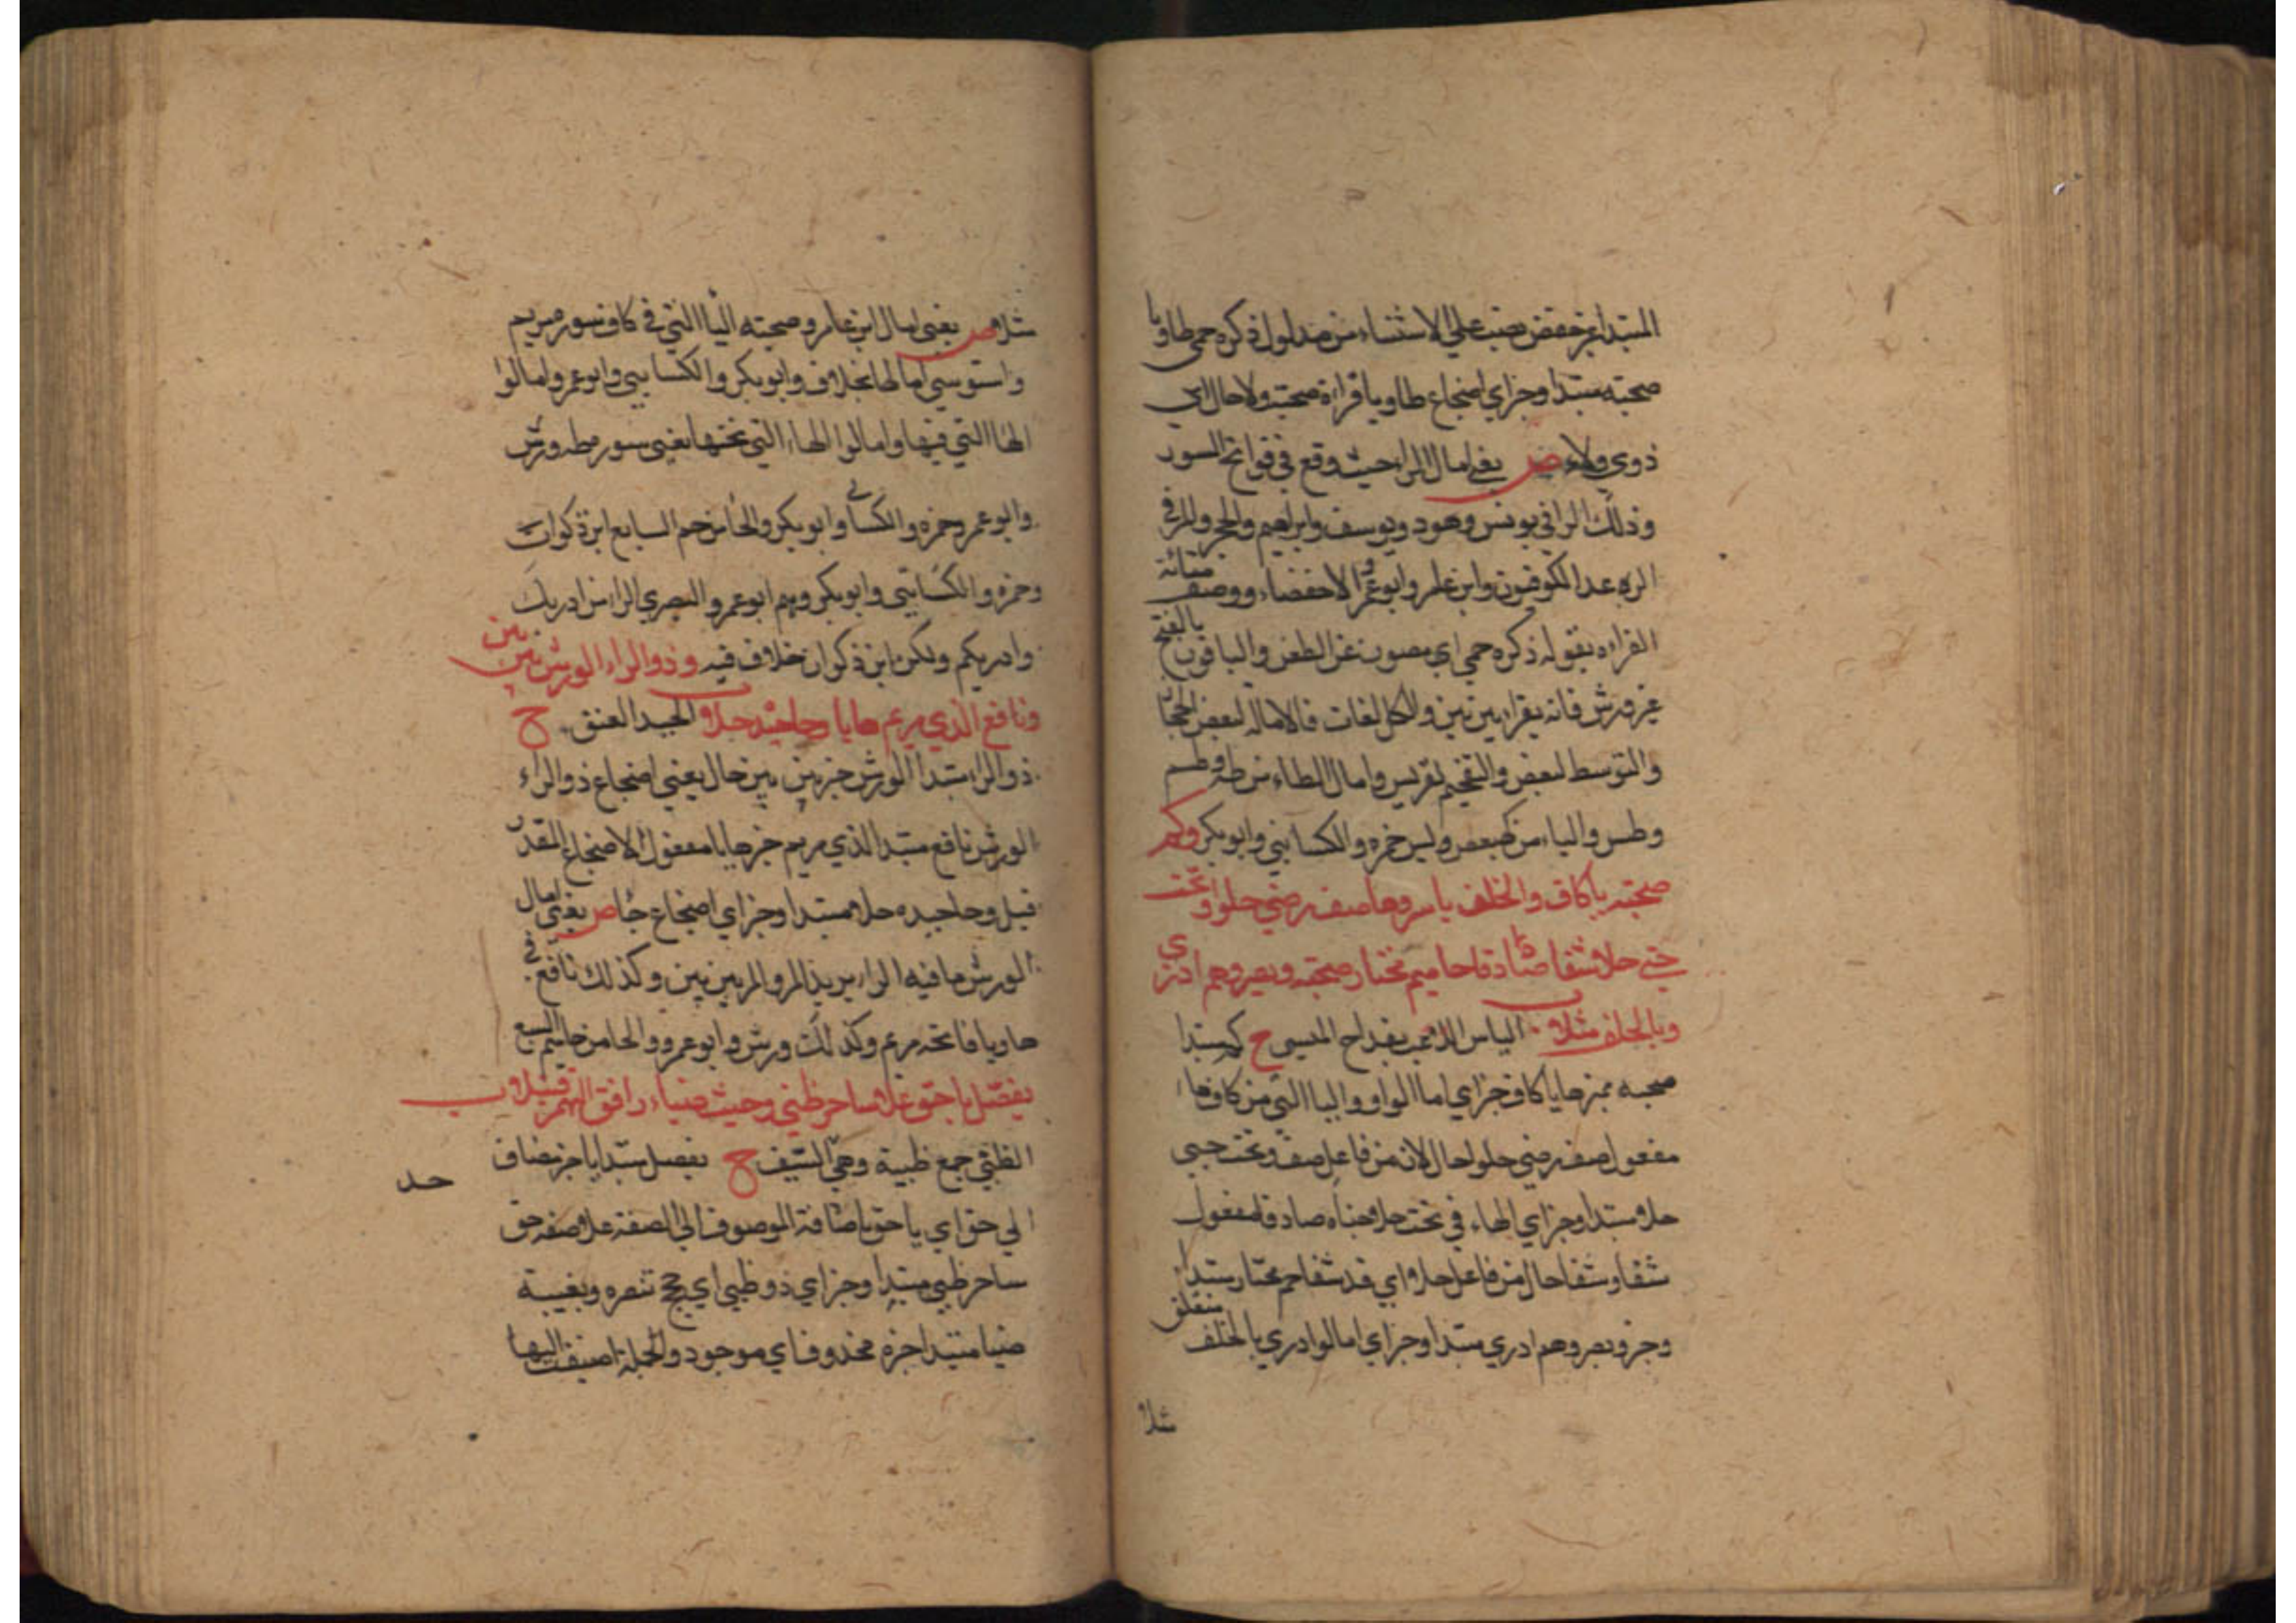 المبتدا غير حفص نصب علي الاستثناء من مدلول ذكره حمي طا ويا
صحبته مبتدا وخبر اي اضجاع طا ويا قراءة صحبته ولا حال اي
ذوي ولاء ص يعني امال الرا حيث وقع في فواتح السور
وذلك الر في يونس وهود ويوسف وابراهيم والحجر والمر في
الرعد الكوفيون وابن عامر وابو عمرو الا حفصا ووصف متانة
القراه بقوله ذكره حمي اي مصون عن الطعن والباقون بالفتح
غير ورش فانه يقرا بين بين والكل لغات فالاماله لبعض الحجاز
والتوسط لبعض والتفخيم لقريس وامال الطاء من طه وطسم
وطس والياء من كهيعص ويس حمزه والكسايي وابو بكر وكم
صحبته يا كاف والخلف ياسر وها صف رضي حلوا وتحت
جني حلا شفا صادقا حاميم مختار صحبته وبصروهم ادري
وبالخلف مثلا الياسر اللاعب بقداح الميسر ح كم مبتدا
صحبه مميزها يا كاف خبر اي امالوا واليا التي من كاف ها
مفعول صف رضي حلوا حالان من فاعل صف وتحت جني
حلا مبتدا وخبر اي الهاء في تحت حلا جناه صادقا مفعول
شفا وشفا حال من فاعل حلا اي قد شفا حم مختار مبتدا
وخبر وبصروهم ادري مبتدا وخبر اي امالوا ادري بالخلف متعلق
مثلا
مثلا ص يعني امال ابن عامر وصحبته اليا التي في كاف سوره مريم
والسوسي امالها بخلاف وابو بكر والكسايي وابو عمر وامالوا
الها التي فيها وامالوا الهاء التي تحتها يعني سوره طه ورش
وابو عمر وحمزه والكسائي وابو بكر والحا من حم السابع ابن ذكوان
وحمزه والكسايي وابو بكر وبهم ابو عمرو البصري الرا من ادريك
وادريكم ولكن ابن ذكوان خلاف فيه وذو الراء لورش بين بين
ونافع الذي مريم هايا وحا جيده حلا الجيد العنق ح
ذو الرا مبتدا لورش خبر بين بين حال يعني اضجاع ذو الراء
لورش نافع مبتدا الذي مريم خبر هايا مفعول الاضجاع المقدر
قبل وحا جيده حلا مبتدا وخبر اي اضجاع حا ص يعني امال
لورش ما فيه الرا يريد الر والمر بين بين وكذلك نافع في
ها ويا فاتحه مريم وكذلك ورش وابو عمرو والحا من حاميم السبع
يفصل يا حق علا ساحر ظبي وحيث ضياء وافق الهمز قنبلا
الظبي جمع ظبية وهي السيف ح يفصل مبتدا يا خبر مضاف
الي حق اي يا حق باضافة الموصوف الي الصفة علا صفه حق
ساحر ظبي مبتدا وخبر اي ذو ظبي اي حجج تنصره وبغيبة
ضيا مبتدا خبره محذوف اي موجود والجملة اضيفت اليها
حد